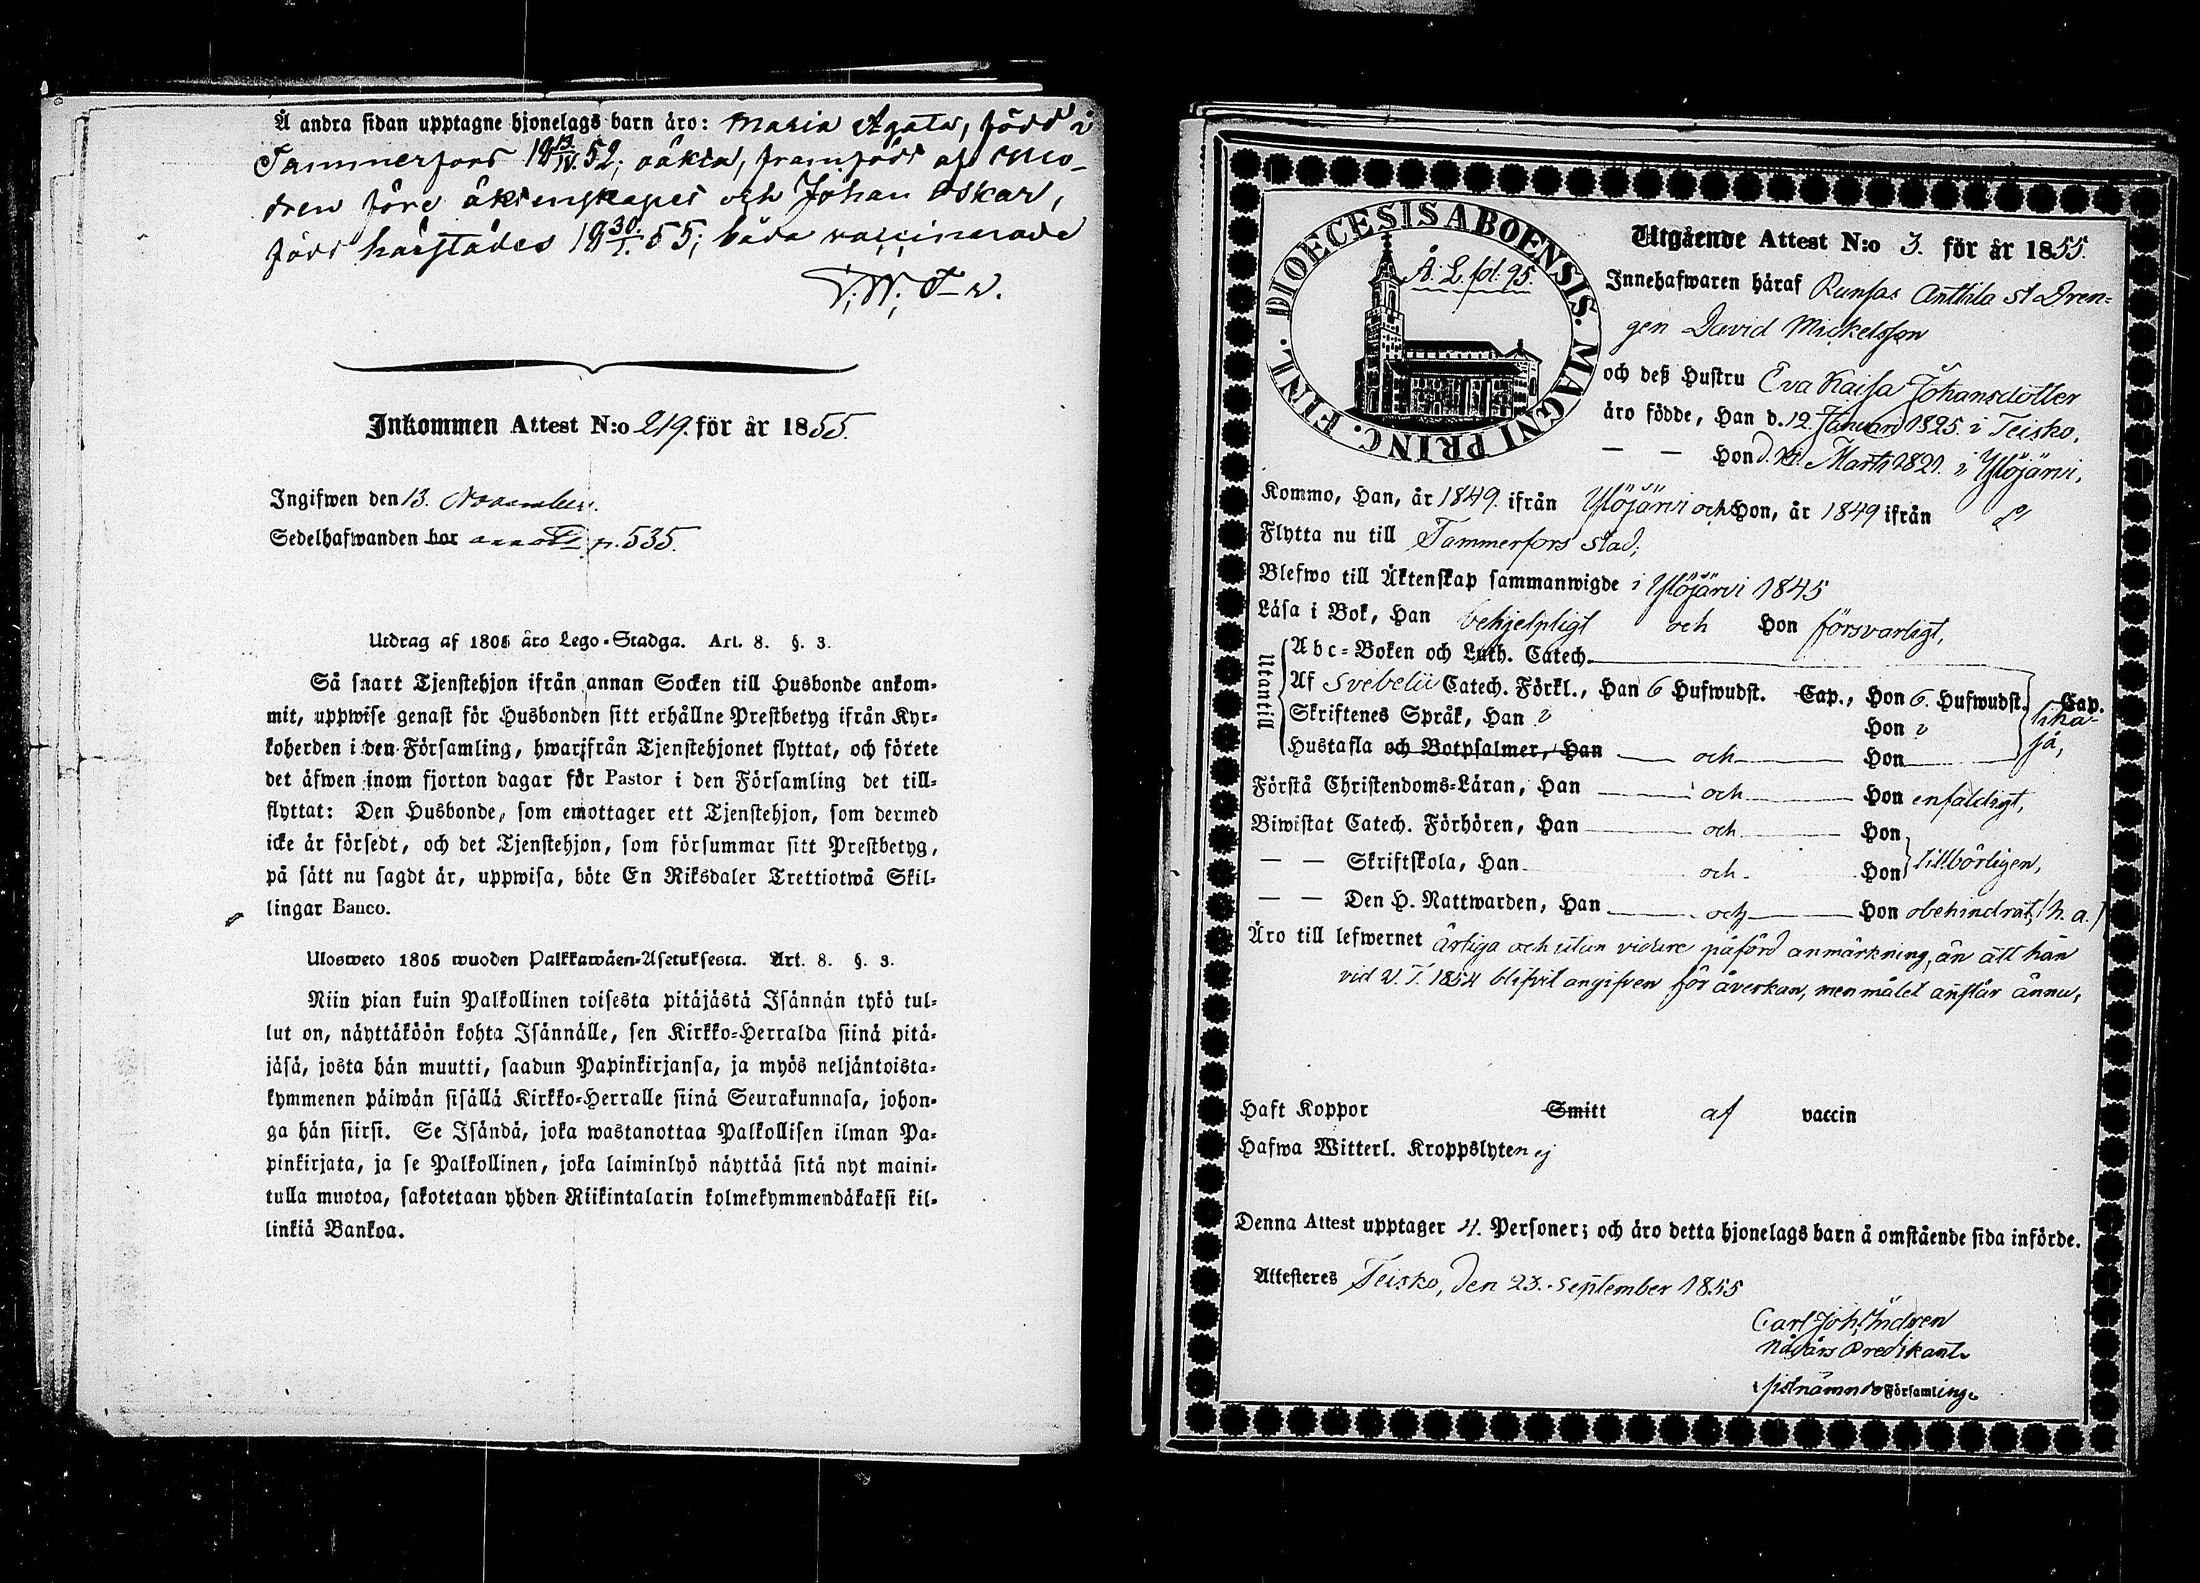 Å andra sidan upptagne hjonelags barn äro: Maria Agata, född i
Tammerfors 18 13/IV. 52; oäkta, framfödt af Mo-
dren före äktenskapet och Johan Oskar,
född härstädes 18 30/I. 55; båda vaccinerade
Inkommen Attest N:o 219. för år 1855.
Ingifwen den 13. November.
Sedelhafwanden bor annot. p. 535.
Utdrag af 1805 års Lego-Stadga. Art. 8. §. 3.
Så snart Tjenstehjon ifrån annan Socken till Husbonde ankom-
mit, uppwise genast för Husbonden sitt erhållne Prestbetyg ifrån Kyr-
koherden i den Församling, hwarifrån Tjenstehjonet flyttat, och förete
det äfwen inom fjorton dagar för Pastor i den Församling det till-
flyttat: Den Husbonde, som emottager ett Tjenstehjon, som dermed
icke är försedt, och det Tjenstehjon, som försummar sitt Prestbetyg,
på sätt nu sagdt är, uppwisa, böte En Riksdaler Trettiotwå Skil-
lingar Banco.
Ulosweto 1805 wuoden Palkkawäen-Asetuksesta. Art. 8. §. 3.
Niin pian kuin Palkollinen toisesta pitäjästä Isännän tykö tul-
lut on, näyttäköön kohta Isännälle, sen Kirkko-Herralda siinä pitä-
jäsä, josta hän muutti, saadun Papinkirjansa, ja myös neljäntoista-
kymmenen päiwän sisällä Kirkko-Herralle siinä Seurakunnasa, johon-
ga hän siirsi. Se Isändä, joka wastanottaa Palkollisen ilman Pa-
pinkirjata, ja se Palkollinen, joka laiminlyö näyttää sitä nyt maini-
tulla muotoa, sakotetaan yhden Riikintalarin kolmekymmendäkaksi kil-
linkiä Bankoa.
DIOECESIS ABOENSIS. MAGNI PRINC. FINL.
Å. L. fol. 95.
Utgående Attest N:o 3. för år 1855.
Innehafwaren häraf Runsas Anttila st Dren-
gen David Mickelsson
och deß Hustru Eva Kaisa Johansdotter
äro födde, Han d. 12. Januari 1825. i Teisko.
— — Hon d. Marti 1821. i Ylöjärvi.
Kommo, Han, år 1849. ifrån Ylöjärvi och Hon, år 1849 ifrån
Flytta nu till Tammerfors stad;
Blefwo till Äktenskap sammanwigde i Ylöjärvi 1845
Läsa i Bok, Han behjelpligt och Hon försvarligt,
Utantill
Abc-Boken och Luth. Catech.
Af Svebelii Catech. Förkl., Han 6 Hufwudst. Cap., Hon 6. Hufwudst. Cap.
Skriftenes Språk, Han Hon lika-
Hustafla och Botpsalmer, Han — och — Hon — så,
Förstå Christendoms-Läran, Han — och — Hon enfaldigt,
Biwistat Catech. Förhören, Han — och — Hon
— — Skriftskola, Han och Hon tillbörligen,
— — Den H. Nattwarden, Han — och — Hon obehindrat,
Äro till lefwernet ärliga och utan vidare påförd anmärkning, än att han
vid V. T. 1854 blifvit angifven för åverkan, men målet anstår ännu,
Haft Koppor Smitt af vaccin
Hafwa Witterl. Kroppslyten ej
Denna Attest upptager 4. Personer; och äro detta hjonelags barn å omstående sida införde.
Attesteres Teisko, den 23. September 1855
Carl Joh.
Nådårs Predikant
Församling.